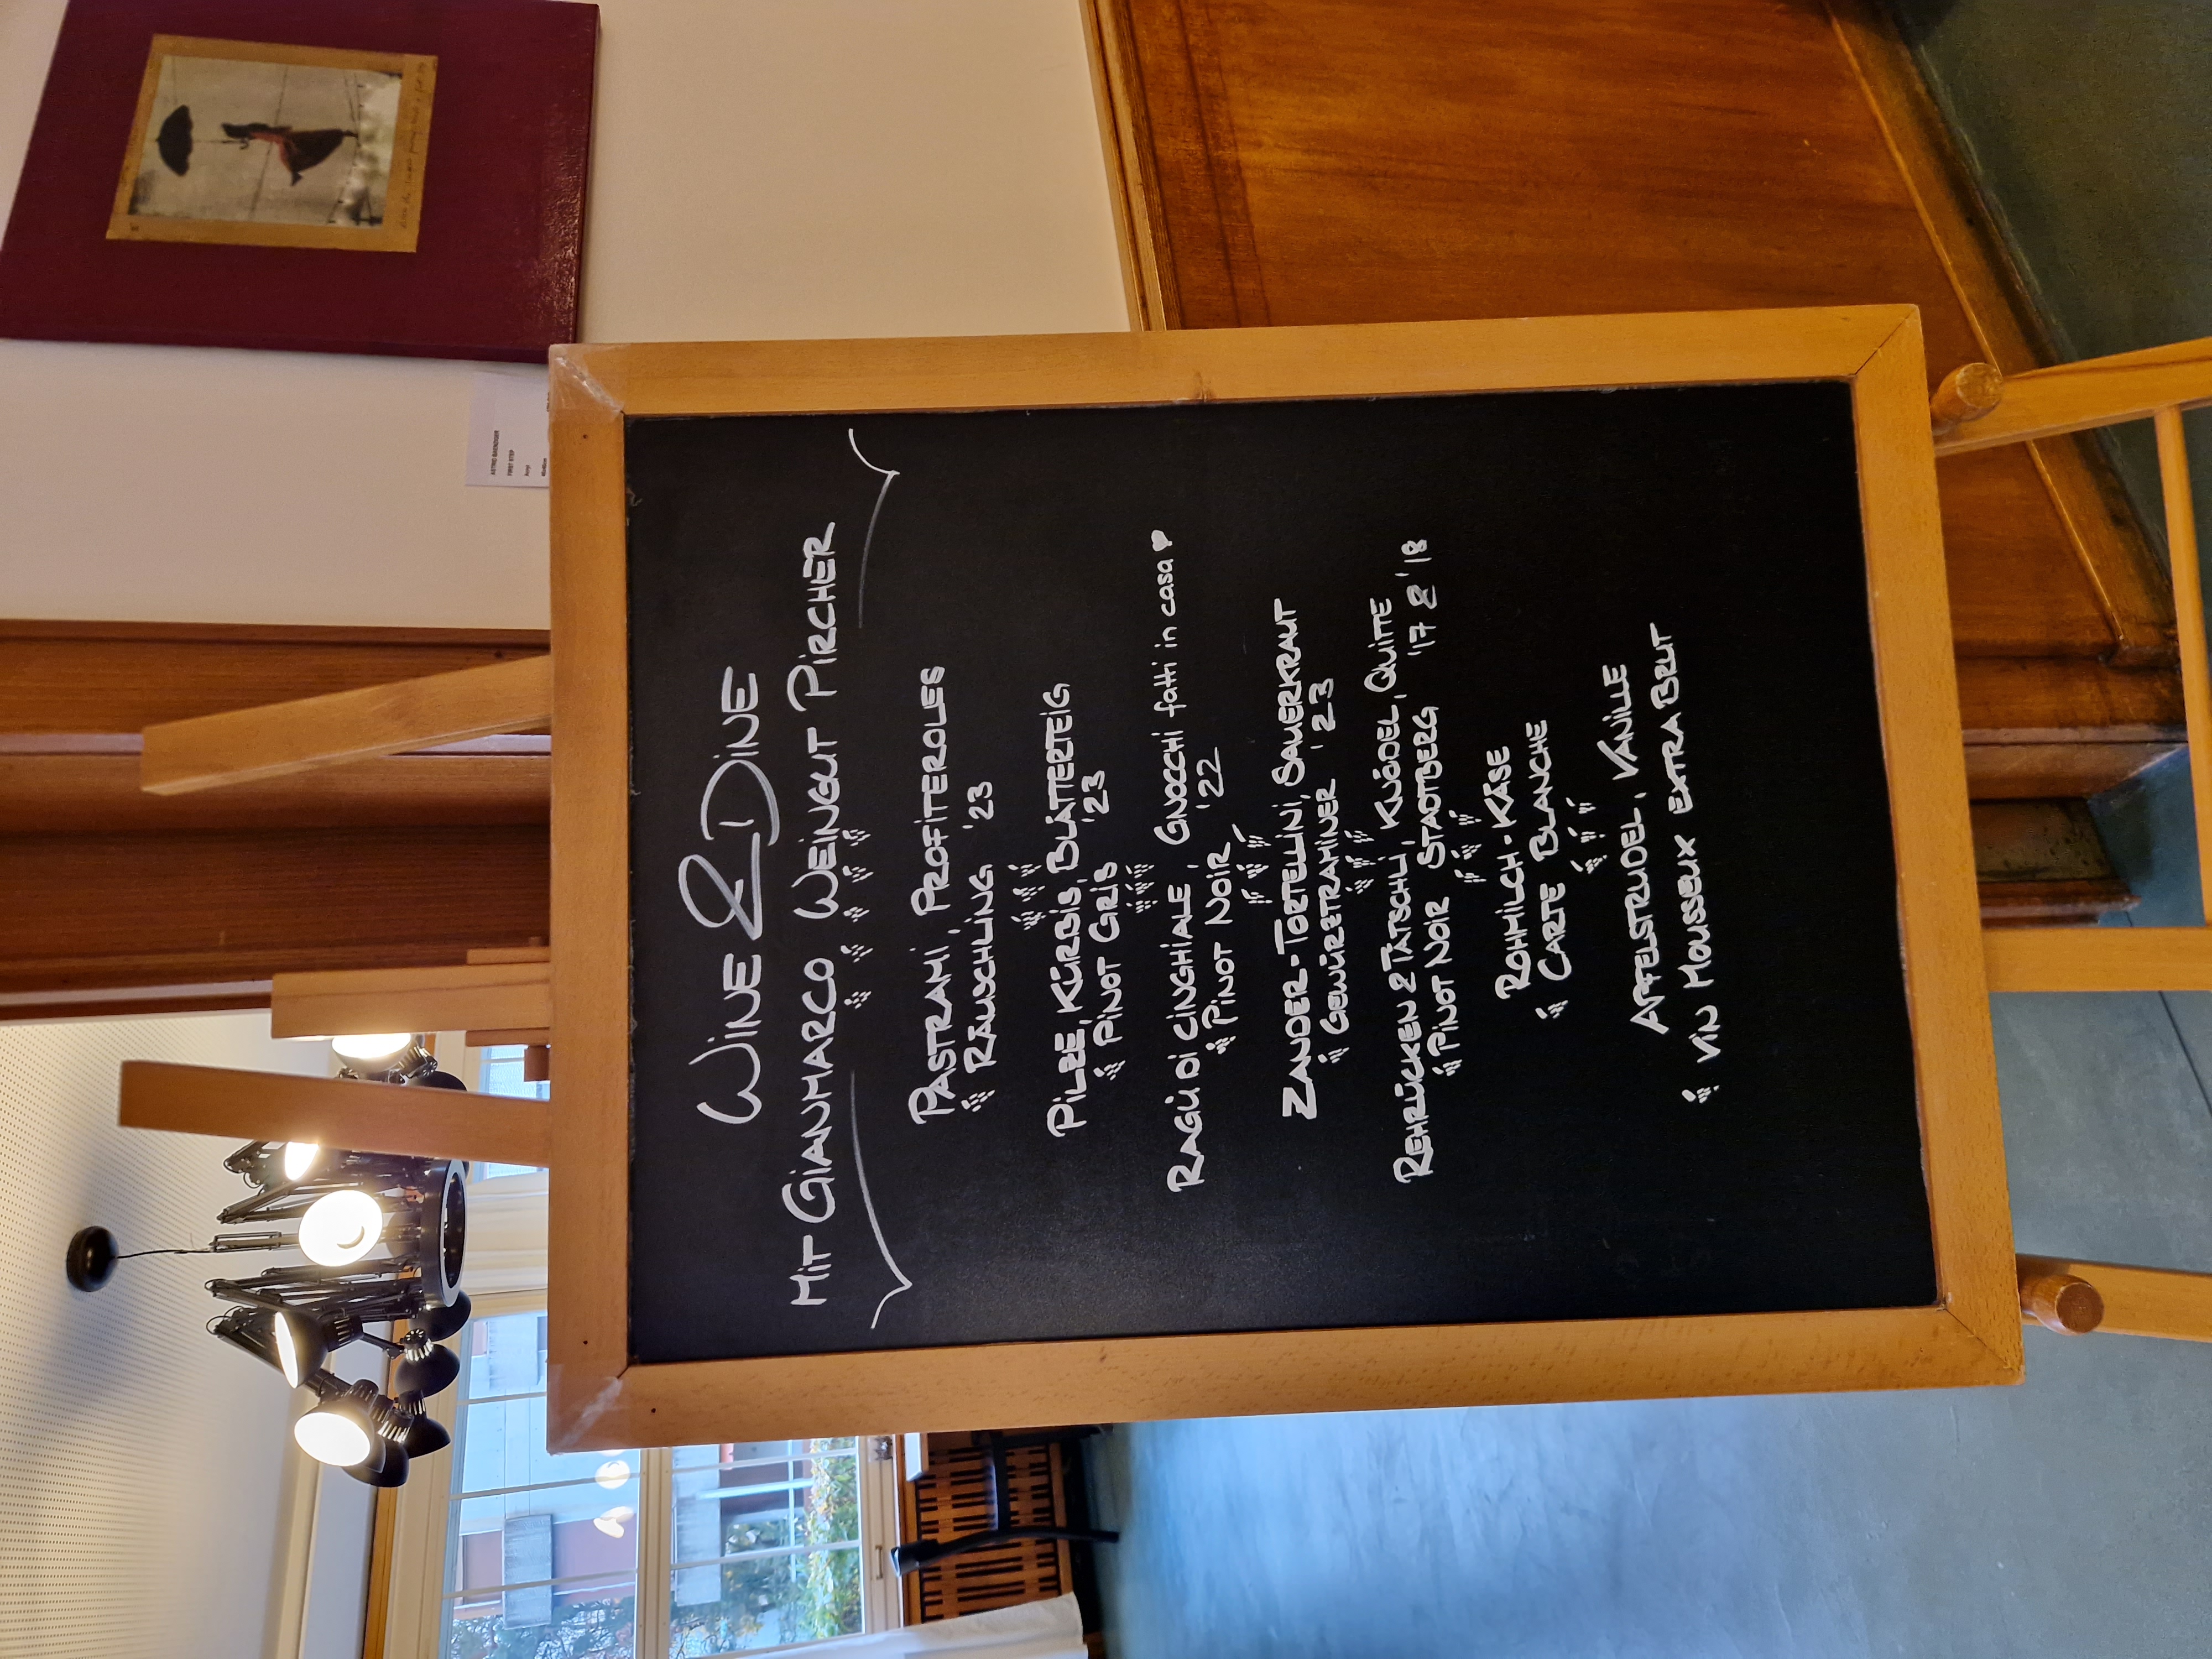 Wine & Dine
Mit Gianmarco Weingut Pircher
Pastrami, Profiteroles
Räuschling '23
Pilze, Kürbis, Blätterteig
Pinot Gris '23
Ragù di Cinghiale, Gnocchi fatti in casa
Pinot Noir '22
Zander-Tortellini, Sauerkraut
Gewürztraminer '23
Rehrücken & Tätschli, Knödel, Quitte
Pinot Noir Stadtberg '17 & '18
Rohmilch-Käse
Carte Blanche
Apfelstrudel, Vanille
Vin Mousseux Extra Brut
ASTRID BAENZIGER
FIRST STEP
Acryl